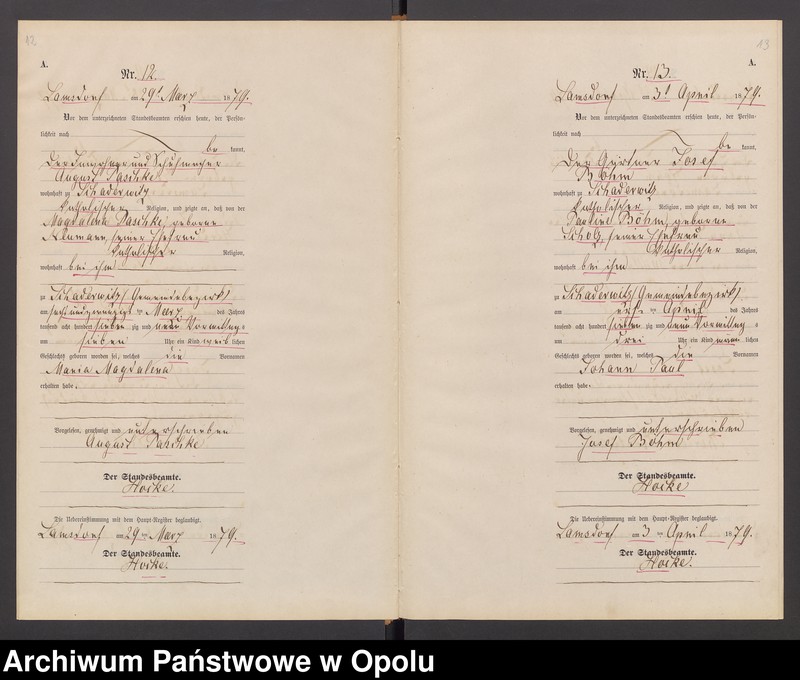 12
A.
Nr. 12.
Lamsdorf am 29t März 1879.
Vor dem unterzeichneten Standesbeamten erschien heute, der Persön-
lichkeit nach
be kannt,
der und Schuhmacher
August Paschke
wohnhaft zu Schaderwitz
katholischer Religion, und zeigte an, daß von der
Magdalena Paschke, geborne
Neumann, seiner Ehefrau
katholischer Religion,
wohnhaft bei ihm
zu Schaderwitz /Gemeindebezirk/
am sechsundzwanzigsten März des Jahres
tausend acht hundert sieben zig und neun Vormittags
um sieben Uhr ein Kind weib lichen
Geschlechts geboren worden sei, welches die Vornamen
Maria Magdalena
erhalten habe.
Vorgelesen, genehmigt und unterschrieben
August Paschke
Der Standesbeamte.
Hocke.
Die Uebereinstimmung mit dem Haupt-Register beglaubigt.
Lamsdorf am 29 ten März 1879.
Der Standesbeamte.
Hocke.
13
A.
Nr. 13.
Lamsdorf am 3t April 1879.
Vor dem unterzeichneten Standesbeamten erschien heute, der Persön-
lichkeit nach
be kannt,
Der Gärtner Josef
Böhm
wohnhaft zu Schaderwitz
katholischer Religion, und zeigte an, daß von der
Pauline Böhm, geborne
Scholz, seiner Ehefrau
katholischer Religion,
wohnhaft bei ihm
zu Schaderwitz /Gemeindebezirk/
am ersten April des Jahres
tausend acht hundert sieben zig und neun Vormittag s
um drei Uhr ein Kind männ lichen
Geschlechts geboren worden sei, welches die Vornamen
Johann Paul
erhalten habe.
Vorgelesen, genehmigt und unterschrieben
Josef Böhm
Der Standesbeamte.
Hocke
Die Uebereinstimmung mit dem Haupt-Register beglaubigt.
Lamsdorf am 3 ten April 1879.
Der Standesbeamte.
Hocke.
Archiwum Państwowe w Opolu